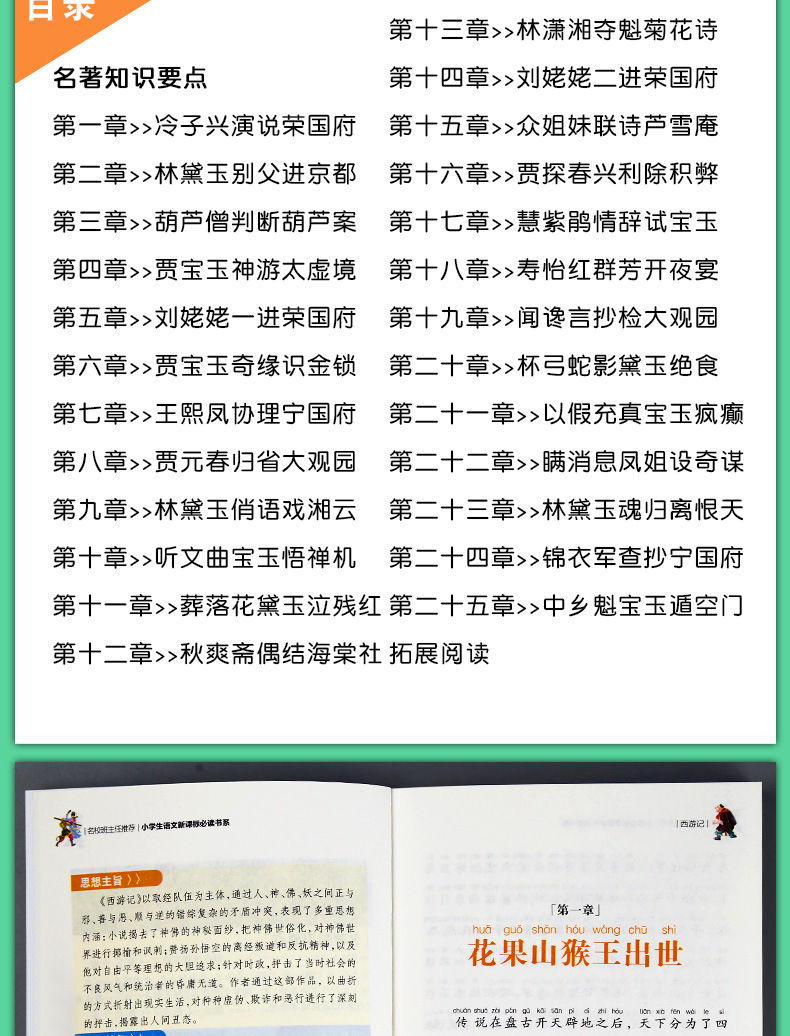 目录
名著知识要点
第一章>>冷子兴演说荣国府
第二章>>林黛玉别父进京都
第三章>>葫芦僧判断葫芦案
第四章>>贾宝玉神游太虚境
第五章>>刘姥姥一进荣国府
第六章>>贾宝玉奇缘识金锁
第七章>>王熙凤协理宁国府
第八章>>贾元春归省大观园
第九章>>林黛玉俏语戏湘云
第十章>>听文曲宝玉悟禅机
第十一章>>葬落花黛玉泣残红
第十二章>>秋爽斋偶结海棠社
第十三章>>林潇湘夺魁菊花诗
第十四章>>刘姥姥二进荣国府
第十五章>>众姐妹联诗芦雪庵
第十六章>>贾探春兴利除积弊
第十七章>>慧紫鹃情辞试宝玉
第十八章>>寿怡红群芳开夜宴
第十九章>>闻谗言抄检大观园
第二十章>>杯弓蛇影黛玉绝食
第二十一章>>以假充真宝玉疯癫
第二十二章>>瞒消息凤姐设奇谋
第二十三章>>林黛玉魂归离恨天
第二十四章>>锦衣军查抄宁国府
第二十五章>>中乡魁宝玉遁空门
拓展阅读
|名校班主任推荐|小学生语文新课标必读书系
思想主旨》》
《西游记》以取经队伍为主体,通过人、神、佛、妖之间正与
邪、善与恶、顺与逆的错综复杂的矛盾冲突,表现了多重思想
内涵:小说揭去了神佛的神秘面纱,把神佛世俗化,对神佛世
界进行揶揄和讽刺;赞扬孙悟空的离经叛道和反抗精神,以及
他对自由平等理想的大胆追求;针对时政,抨击了当时社会的
不良风气和统治者的昏庸无道。作者通过这部作品,以曲折
的方式折射出现实生活,对种种虚伪、欺诈和恶行进行了深刻
的抨击,揭露出人间丑态。
|西游记|
「第一章」
huā guǒ shān hóu wáng chū shì
花果山猴王出世
chuán shuō zài pán gǔ kāi tiān pì dì zhī hòu tiān xià fēn wéi le sì
传说在盘古开天辟地之后,天下分为了四